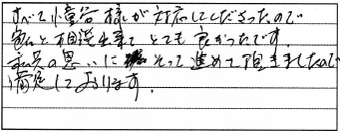 すべて憧谷様が対応してくださったので
色々と相談出来て とても良かったです。
家族の思いに そって進めて頂きましたので
満足しております。